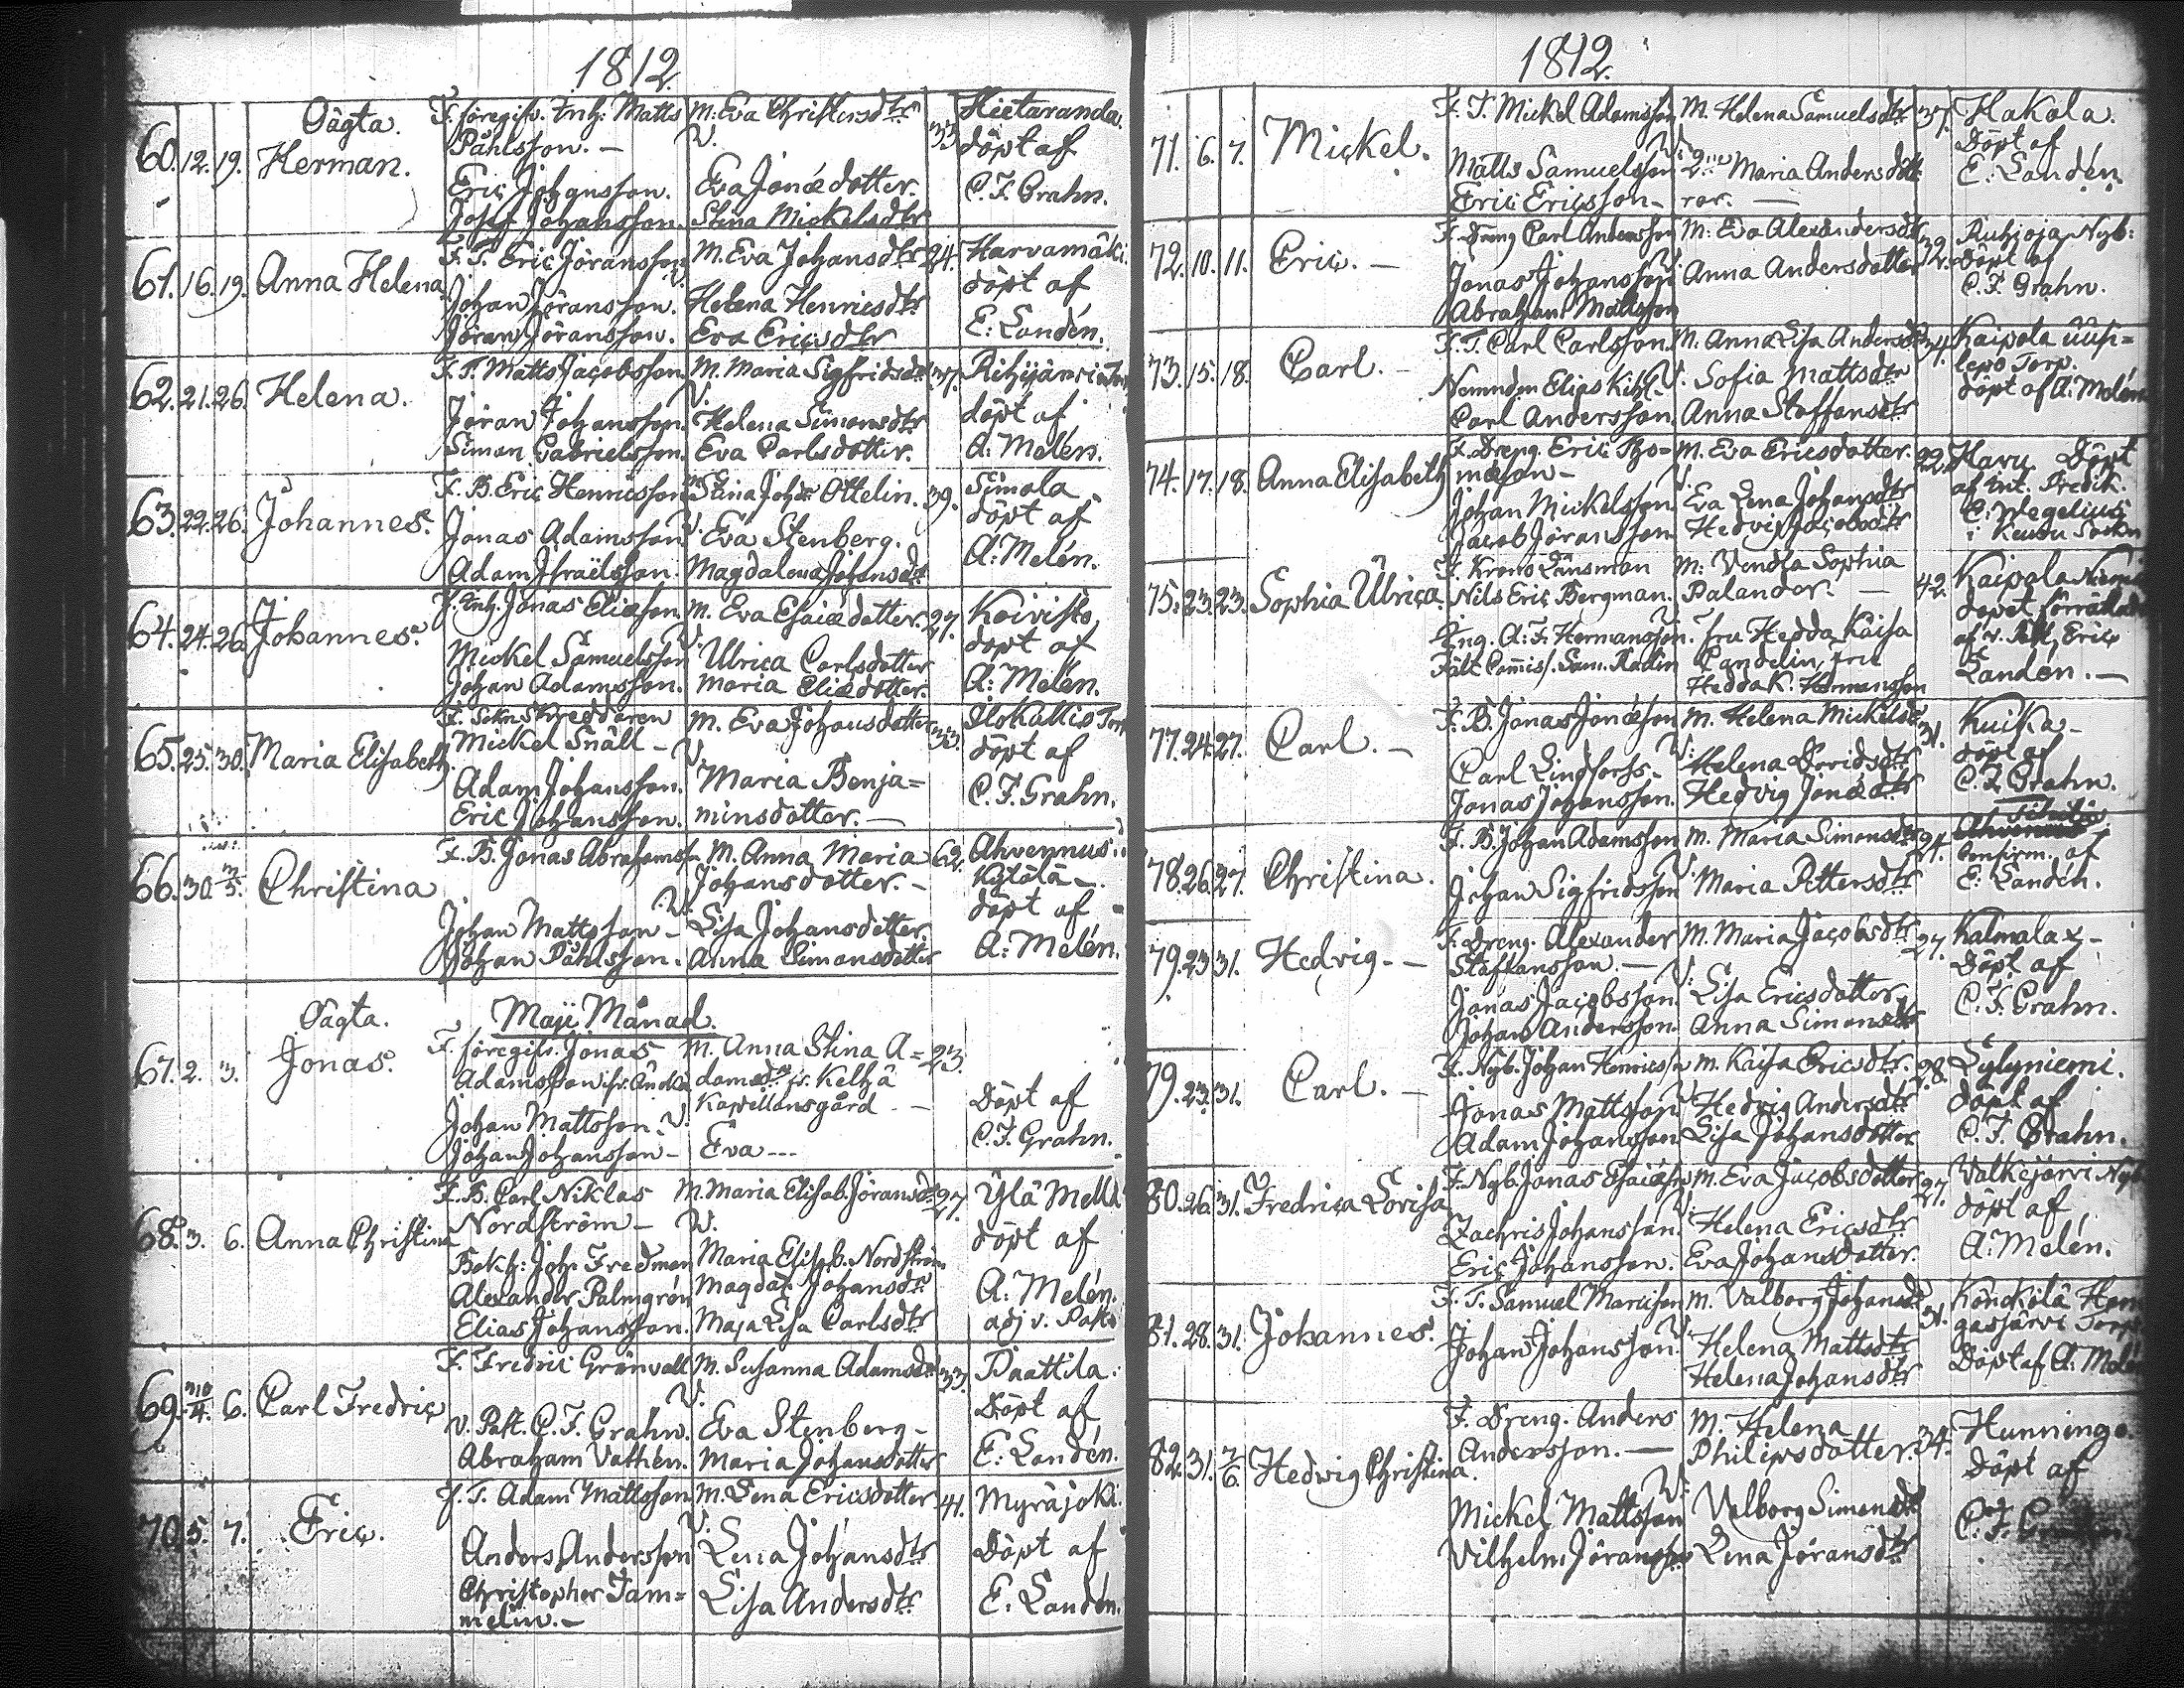 1812.
Oägta.
60. 12. 19. Herman.
F. föregifv. Enk: Matts
Påhlsson. —
M. Eva Christersdtr
33
Hietaranda.
döpt af
C. F. Grahn.
V.
Eric Johansson.
Josef Johansson.
Eva Jonædotter.
Stina Mickelsdtr
61. 16. 19. Anna Helena
F. T. Eric Jöransson
M. Eva Johansdtr 24.
Harvamäki.
döpt af
E: Landén.
V.
Johan Jöransson.
Jöran Jöransson.
Helena Henricsdtr
Eva Ericsdtr
62. 21. 26. Helena.
F. T. Matts Jacobsson
M. Maria Sigfridsdr 37.
Rihijärvi
döpt af
A: Melén.
V.
Jöran Johansson.
Simon Gabrielsson.
Helena Simonsdtr
Eva Carlsdotter.
63. 22. 26. Johannes.
F. B. Eric Henricsson
M Stina Johdr Ottelin. 39.
Simola
döpt af
A: Melén.
V.
Jonas Adamsson
Adam Israëlsson.
Eva Stenberg.
Magdalena Johansdr
64. 24. 26 Johannes.
F. Enk. Jonas Eliæson.
M. Eva Esaiædotter. 27.
Koivisto,
döpt af
A: Melén.
V.
Mickel Samuelsson
Johan Adamsson.
Ulrica Carlsdotter
Maria Eliædotter.
65. 25. 30. Maria Elisabeth.
F. Sokn Skreddaren
Mickel Snäll —
M. Eva Johansdotter
33.
Ilokallio Torp
döpt af
C. F. Grahn.
V.
Adam Johansson.
Eric Johansson.
Maria Benja=
minsdotter. —
66. 30 3/5. Christina
F. B. Jonas Abrahamss.
M. Anna Maria
Johansdotter. —
Ahvennus
Kylölä —
döpt af
A: Melén.
V.
Johan Mattsson —
Johan Påhlsson.
Lisa Johansdotter.
Anna Simonsdotter
Maji Månad.
Oägta.
67. 2. 3. Jonas.
F. föregifv. Jonas
Adamsson. fr.
M. Anna Stina A= 23.
damsdr fr. Kelhä
Kapellansgård —
Döpt af
C. F. Grahn.
V.
Johan Mattsson.
Johan Johansson —
Eva ---
68. 3. 6. Anna Christina
F. B. Carl Niklas
Nordström —
M. Maria Elisab. Jöransdr 27.
Ylä Mellå
döpt af
A. Melén.
adj v. Past.
V.
Bokh: Joh. Fredman
Alexander Palmgrén
Elias Johansson.
Maria Elisab. Nordström
Magdal. Johansdr
Maja Lisa Carlsdtr
69. 30/4. 6. Carl Fredric
F. Fredric Grönvall
M. Susanna Adamsdr 33.
Paattila.
Döpt af
E. Landén.
V.
v. Past. C. F. Grahn.
Abraham Vathén.
Eva Stenberg —
Maria Johansdotter
70. 5. 7. Eric.
F. T. Adam Mattsson
M. Lena Ericsdotter 41.
Myräjoki.
Döpt af
E. Landén.
V.
Anders Andersson
Christopher Tam=
melin. —
Lena Johansdtr
Lisa Andersdtr
1812.
71. 6. 7. Mickel.
F. T. Mickel Adamsson
M. Helena Samuelsdtr 37.
Hakola.
Döpt af
E. Landén.
V.
Matts Samuelsson
Eric Ericsson —
2ne Maria Andersdött=
rar. —
72. 10. 11. Eric. —
F. Dreng Carl Andersson
M: Eva Alexandersdr
32.
Ruhjoja Nyb:
Döpt af
C. F. Grahn.
V.
Jonas Johansson
Abraham Mattsson
Anna Andersdotter
73. 15. 18. Carl. —
F. T. Carl Carlsson.
M. Anna Lisa Andersdr 34.
Kaipola Uusi=
lepo Torp.
döpt af A: Melén
V.
Nemndem Elias Kihl.
Carl Andersson.
Sofia Mattsdtr
Anna Staffansdtr
74. 17. 18. Anna Elisabeth
F. Dreng. Eric Tho=
mæson —
M. Eva Ericsdotter. 22.
Haru Döpt
af Int. Predik.
C: Wegelius
i Keuru Sockn
V.
Johan Mickelsson
Jacob Jöransson
Eva Lena Johansdtr
Hedvig Jacobsdtr
75. 23. 23. Sophia Ulrica.
F. Krono Länsman
Nils Eric Bergman.
M: Vendla Sophia
Palander. — 42.
Kaipola
dopet förrättadt
af v. Past. Eric
Landén. —
Eng. A: F. Hermansson.
Fält Comiss. Sam. Rodin
Fru Hedda Kaisa
Candelin, Fru
Hedda K. Hermansson
77. 24. 27. Carl. —
F. B. Jonas Jonæson
M. Helena Mickelsdr
31.
Kuika —
döpt af
C. F. Grahn.
V.
Carl Lindforss —
Jonas Johansson.
Helena Davidsdtr
Hedvig Jonædtr
78. 26. 27. Christina.
F. B. Johan Adamsson
M. Maria Simonsdtr 24.
Confirm. af
E: Landén.
V.
Johan Sigfridsson
Maria Pettersdtr
79. 23 31. Hedvig. —
F. Dreng. Alexander
Staffansson. —
M. Maria Jacobsdtr
27.
Kalmalax —
Döpt af
C. F. Grahn.
V.
Jonas Jacobsson.
Johan Andersson.
Lisa Ericsdotter
Anna Simonsdtr
79. 23. 31. Carl. —
F. Nyb. Johan Henricss.
M. Kaisa Ericsdtr. 28.
Lylyniemi.
döpt af
C. F. Grahn.
V.
Jonas Mattsson
Adam Johansson
Hedvig Andersdtr
Lisa Johansdotter
80. 26. 31. Fredrica Lovisa
F. Nyb. Jonas Esaiæss.
M. Eva Jacobsdotter 27.
Valkejärvi Nyb
döpt af
A: Melén.
V.
Zachris Johansson.
Eric Johansson.
Helena Ericsdtr
Eva Johansdotter.
81. 28. 31. Johannes.
F. T. Samuel Marcusson
M. Valborg Johansdr
31.
Könckölä Hon
gasjärvi Torp
Döpt af A: Melén
V.
Johan Johansson.
Helena Mattsdtr
Helena Johansdtr
82. 31. 2/6. Hedvig Christina.
F. Dreng. Anders
Andersson. —
M. Helena
Philipsdotter. 34.
Hunninge.
Döpt af
C. F.
V.
Mickel Mattsson
Vilhelm Jöransson
Valborg Simonsdr
Lena Jöransdtr